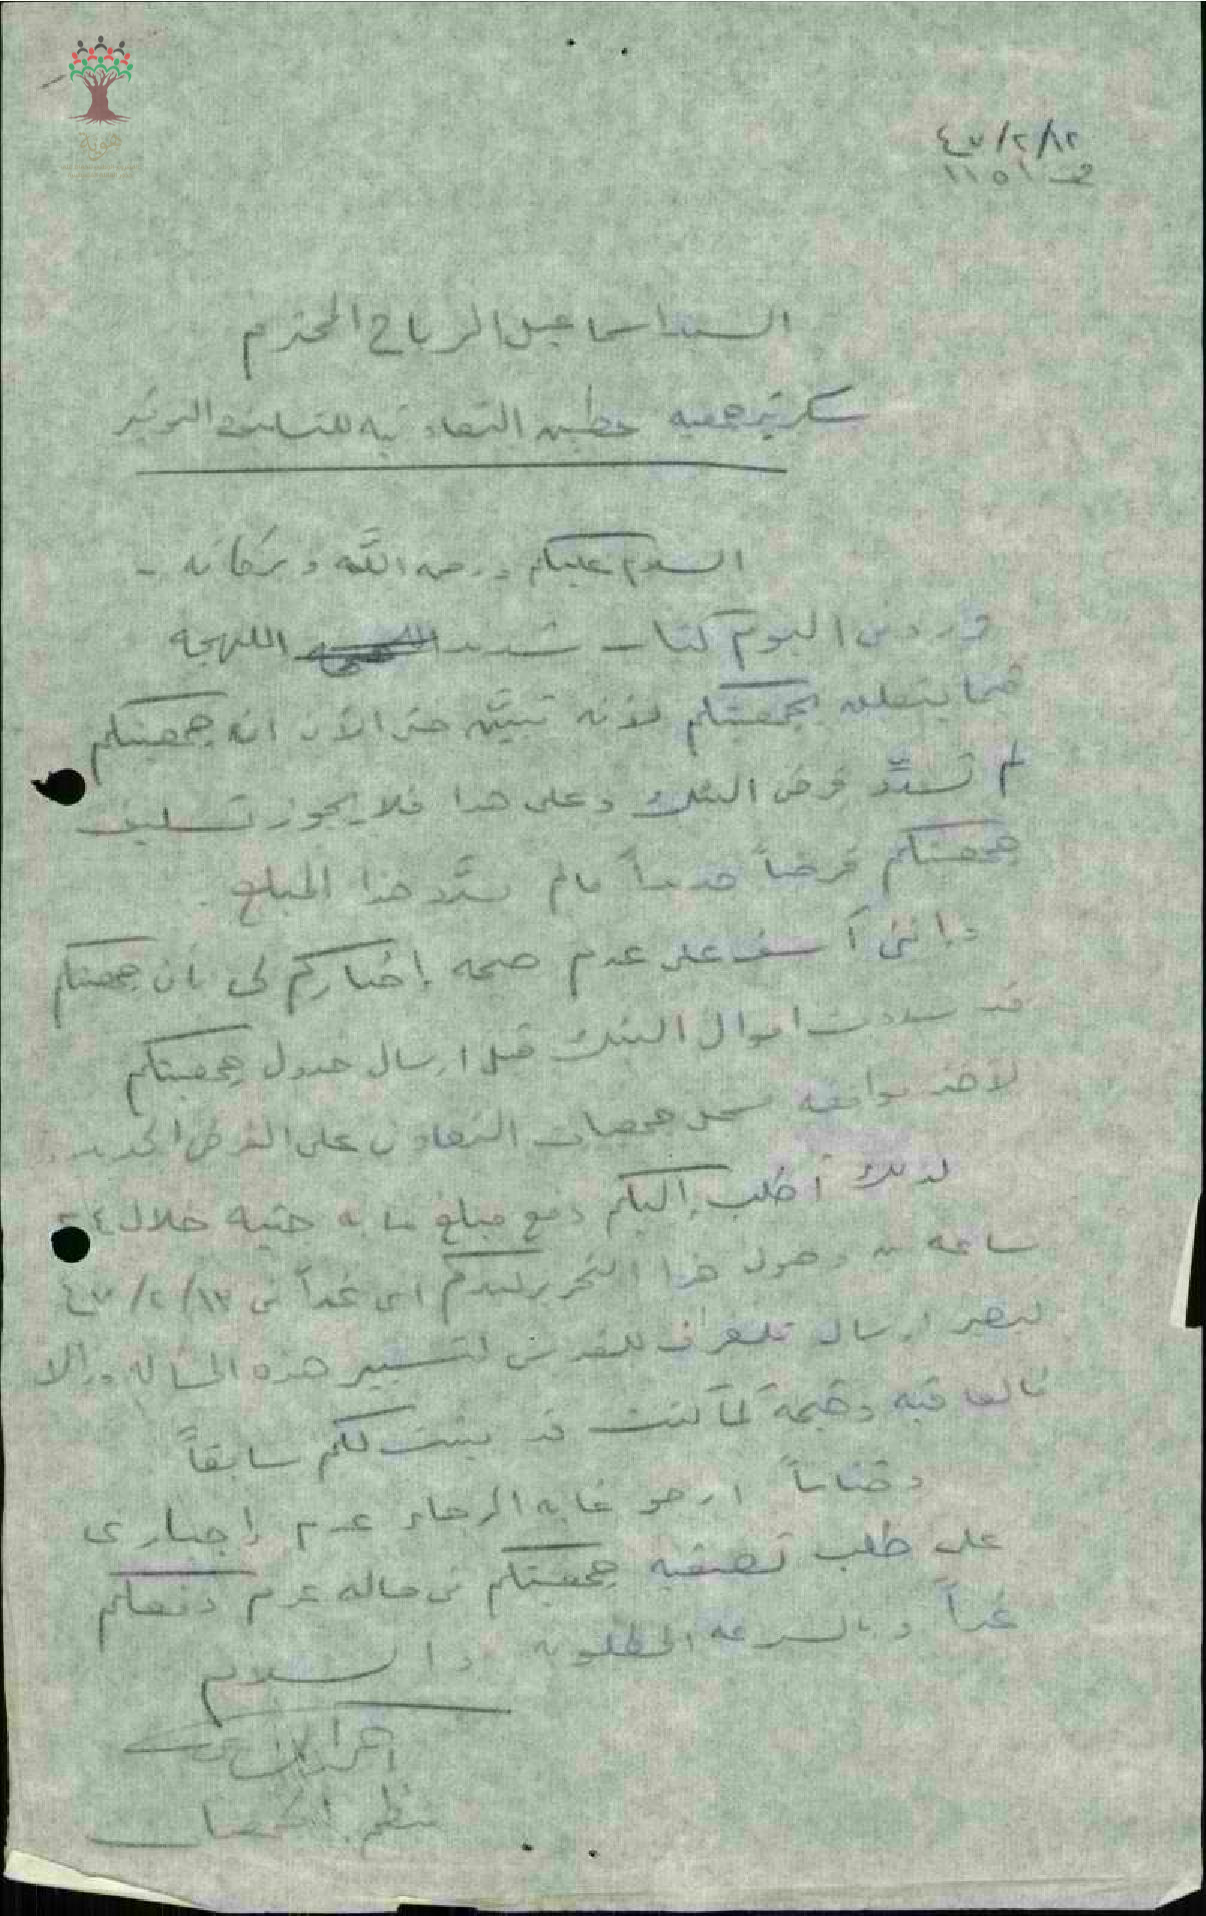 هوية
٤٧/٢/١٢
السيد اسماعيل الرباح المحترم
سكرتير جمعية حطين التعاونية للتسليف والتوفير
السلام عليكم ورحمة الله وبركاته -
وردني اليوم كتاب شديد اللهجه
فيما يتعلق بجمعيتكم لأنه تبيَّن حتى الآن ان جمعيتكم
لم تسدِّد قرض البنك وعلى هذا فلا يجوز تسليف
جمعيتكم قرضاً جديداً مالم يسدَّد هذا المبلغ .
وانني آسف على عدم صحه إخباركم لي بأن جمعيتكم
قد سددت اموال البنك قبل ارسال جدول جمعيتكم
لأخذ موافقه مسجل جمعيات التعاون على القرض الجديد .
لذلك أطلب إليكم دفع مبلغ مايه جنيه خلال ٢٤
ساعه من وصول هذا التحرير لديكم اى غداً في ٤٧/٢/١٣
ليصير ارسال تلغراف للقدس لتسيير هذه المسأله وإلا
فالعاقبه وخيمة لما كنت قد بينت لكم سابقاً
وختاماً ارجو غايه الرجاء عدم إجبارى
على طلب تصفيه جمعيتكم في حاله عدم دفعكم
غداً وبالسرعه المطلوبه والسلام
منظم الجمعيات